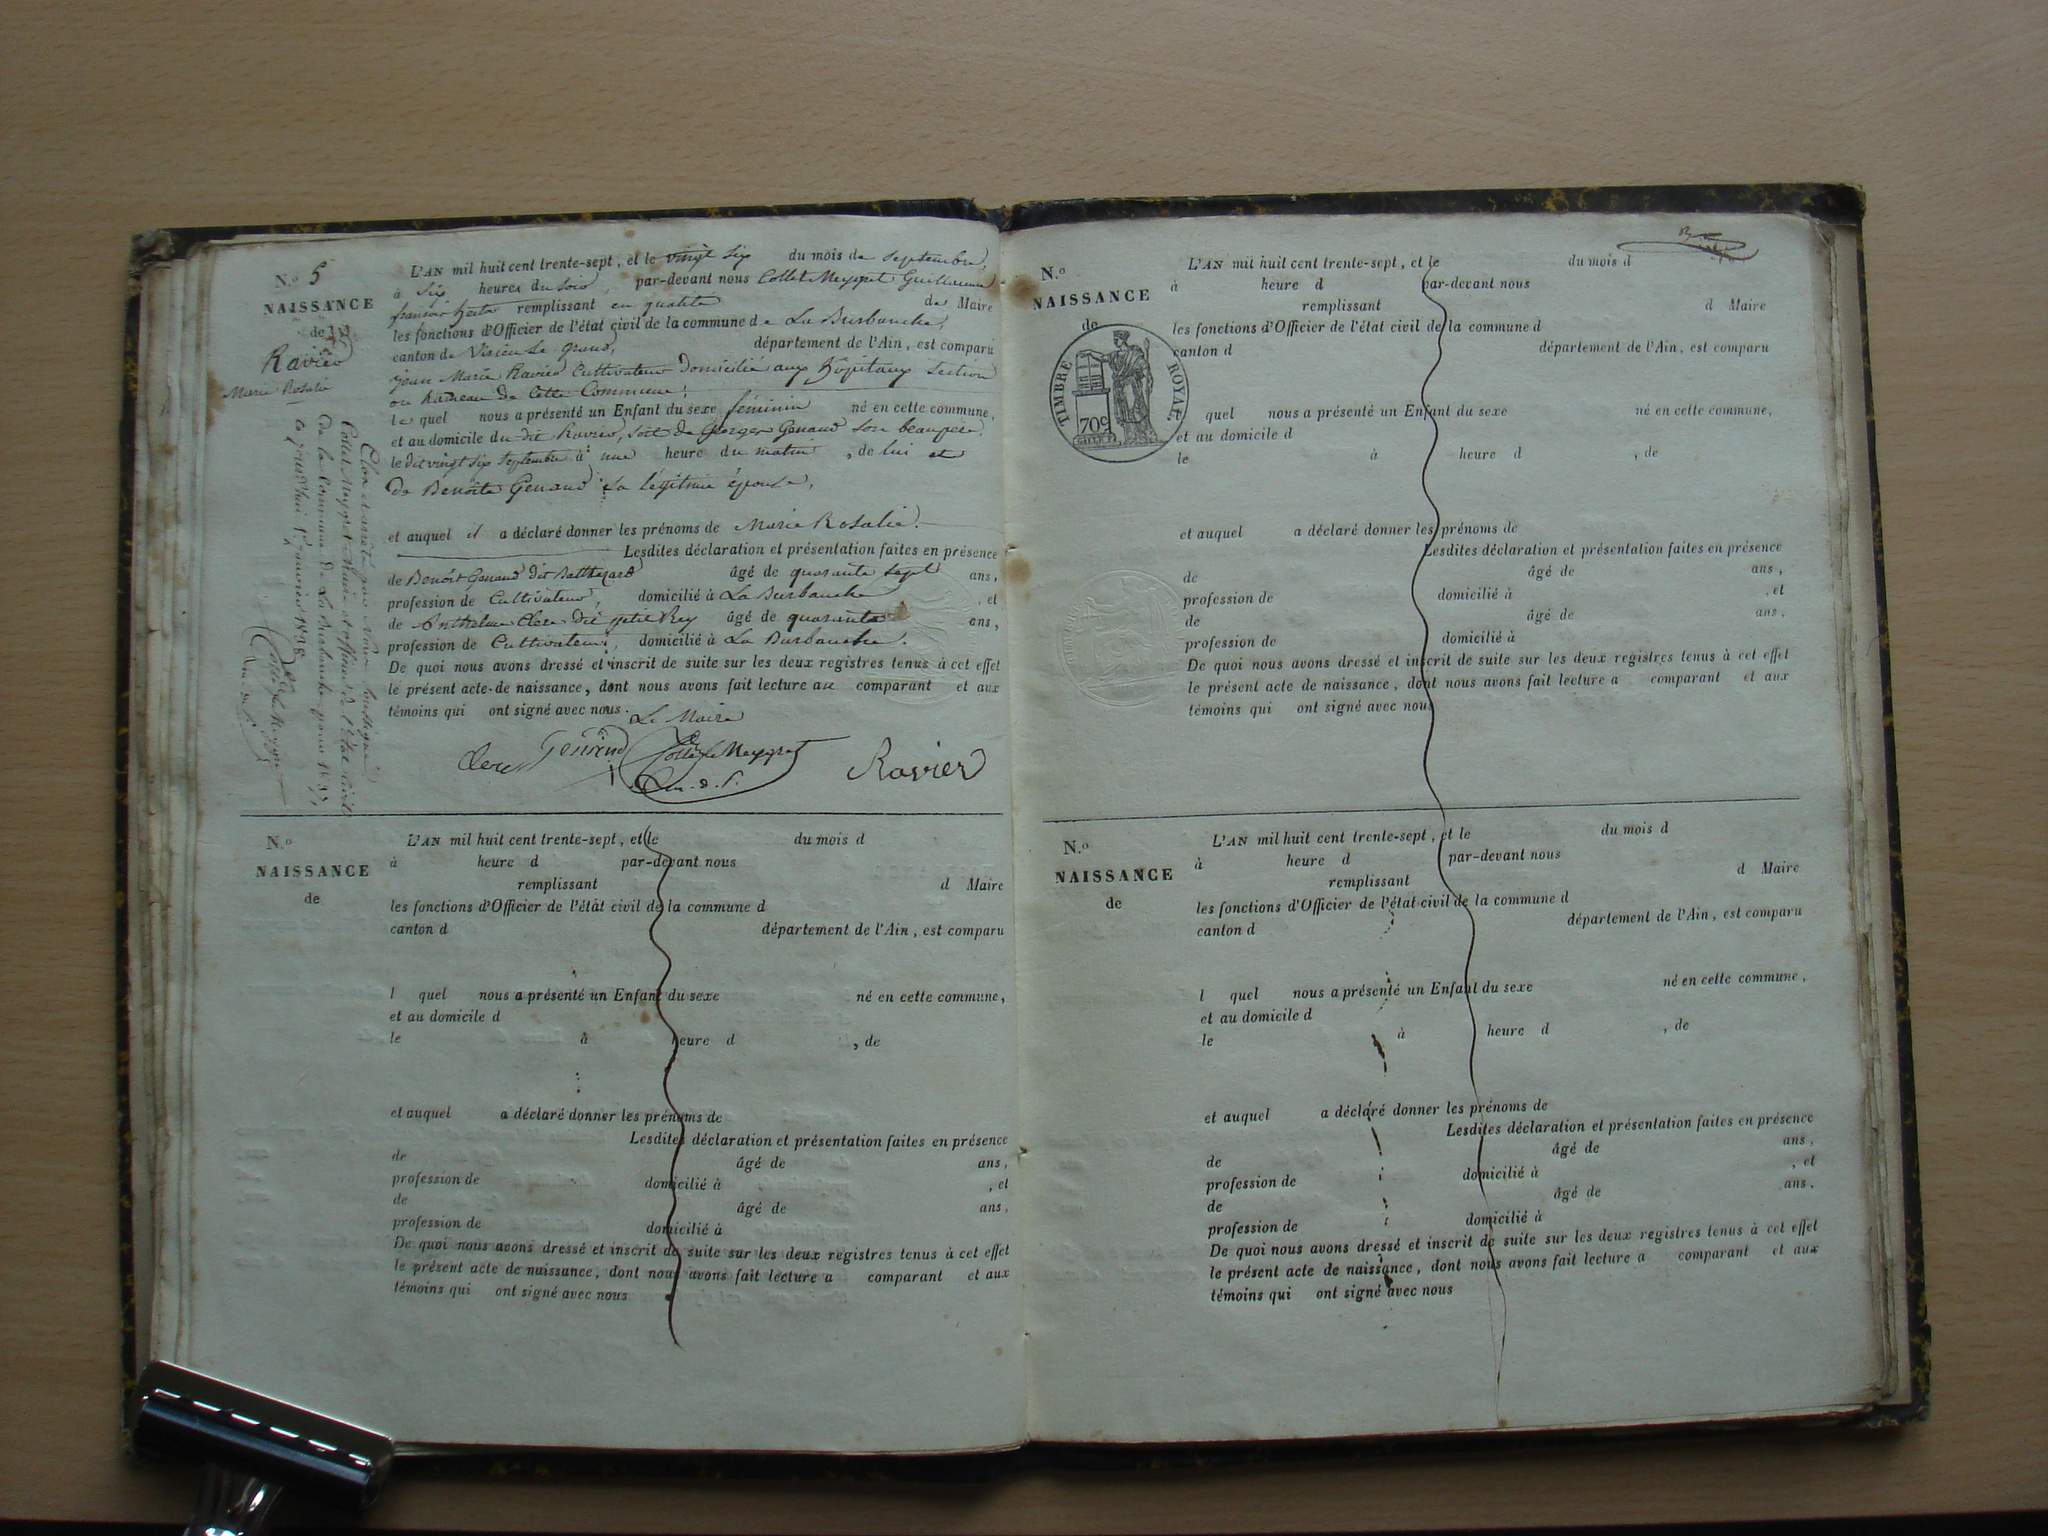 N.o 5
NAISSANCE
de
Ravier
Marie Rosalie
L'AN mil huit cent trente-sept, et le vingt six du mois de septembre,
à six heures du soir, par-devant nous Collet Meygret Guillaume
françois hector remplissant en qualité de Maire
les fonctions d'Officier de l'état civil de la commune de La Burbanche,
canton de Virieu Le grand, département de l'Ain, est comparu
jean Marie Ravier Cultivateur Domicilié aux hôpitaux Section
ou hameau de Cette Commune;
le quel nous a présenté un Enfant du sexe féminin né en cette commune,
et au domicile du dit Ravier, soit de Georges Genaud son beaupere.
le dit vingt six Septembre à une heure du matin, de lui et
de Benoîte Genaud sa légitime épouse,
et auquel il a déclaré donner les prénoms de Marie Rosalie.
Lesdites déclaration et présentation faites en présence
de Benoît Genaud dit Balthazard âgé de quarante sept ans,
profession de Cultivateur, domicilié à La Burbanche, et
de Anthelme Clerc dit petit Rey âgé de quarante ans,
profession de Cultivateur, domicilié à La Burbanche.
De quoi nous avons dressé et inscrit de suite sur les deux registres tenus à cet effet
le présent acte de naissance, dont nous avons fait lecture au comparant et aux
témoins qui ont signé avec nous.
Le Maire
Clerc Genaud Collet Meygret Ravier
Clos et arrêté par Nous soussigné
Collet Meygret Maire et officier de l'état civil
de la Commune de La Burbanche pour 1837,
ce jourd'hui 1er janvier 1838.
Collet Meygret
N.o
NAISSANCE
de
L'AN mil huit cent trente-sept, et le du mois d
à heure d par-devant nous
remplissant d Maire
les fonctions d'Officier de l'état civil de la commune d
canton d département de l'Ain, est comparu
l quel nous a présenté un Enfant du sexe né en cette commune,
et au domicile d
le à heure d , de
et auquel a déclaré donner les prénoms de
Lesdites déclaration et présentation faites en présence
de âgé de ans,
profession de domicilié à , et
de âgé de ans,
profession de domicilié à
De quoi nous avons dressé et inscrit de suite sur les deux registres tenus à cet effet
le présent acte de naissance, dont nous avons fait lecture a comparant et aux
témoins qui ont signé avec nous
N.o
NAISSANCE
de
TIMBRE ROYAL
70c
L'AN mil huit cent trente-sept, et le du mois d
à heure d par-devant nous
remplissant d Maire
les fonctions d'Officier de l'état civil de la commune d
canton d département de l'Ain, est comparu
quel nous a présenté un Enfant du sexe né en cette commune,
et au domicile d
le à heure d , de
et auquel a déclaré donner les prénoms de
Lesdites déclaration et présentation faites en présence
de âgé de ans,
profession de domicilié à , et
de âgé de ans,
profession de domicilié à
De quoi nous avons dressé et inscrit de suite sur les deux registres tenus à cet effet
le présent acte de naissance, dont nous avons fait lecture a comparant et aux
témoins qui ont signé avec nous
N.o
NAISSANCE
de
L'AN mil huit cent trente-sept, et le du mois d
à heure d par-devant nous
remplissant d Maire
les fonctions d'Officier de l'état civil de la commune d
canton d département de l'Ain, est comparu
l quel nous a présenté un Enfant du sexe né en cette commune,
et au domicile d
le à heure d , de
et auquel a déclaré donner les prénoms de
Lesdites déclaration et présentation faites en présence
de âgé de ans,
profession de domicilié à , et
de âgé de ans,
profession de domicilié à
De quoi nous avons dressé et inscrit de suite sur les deux registres tenus à cet effet
le présent acte de naissance, dont nous avons fait lecture a comparant et aux
témoins qui ont signé avec nous